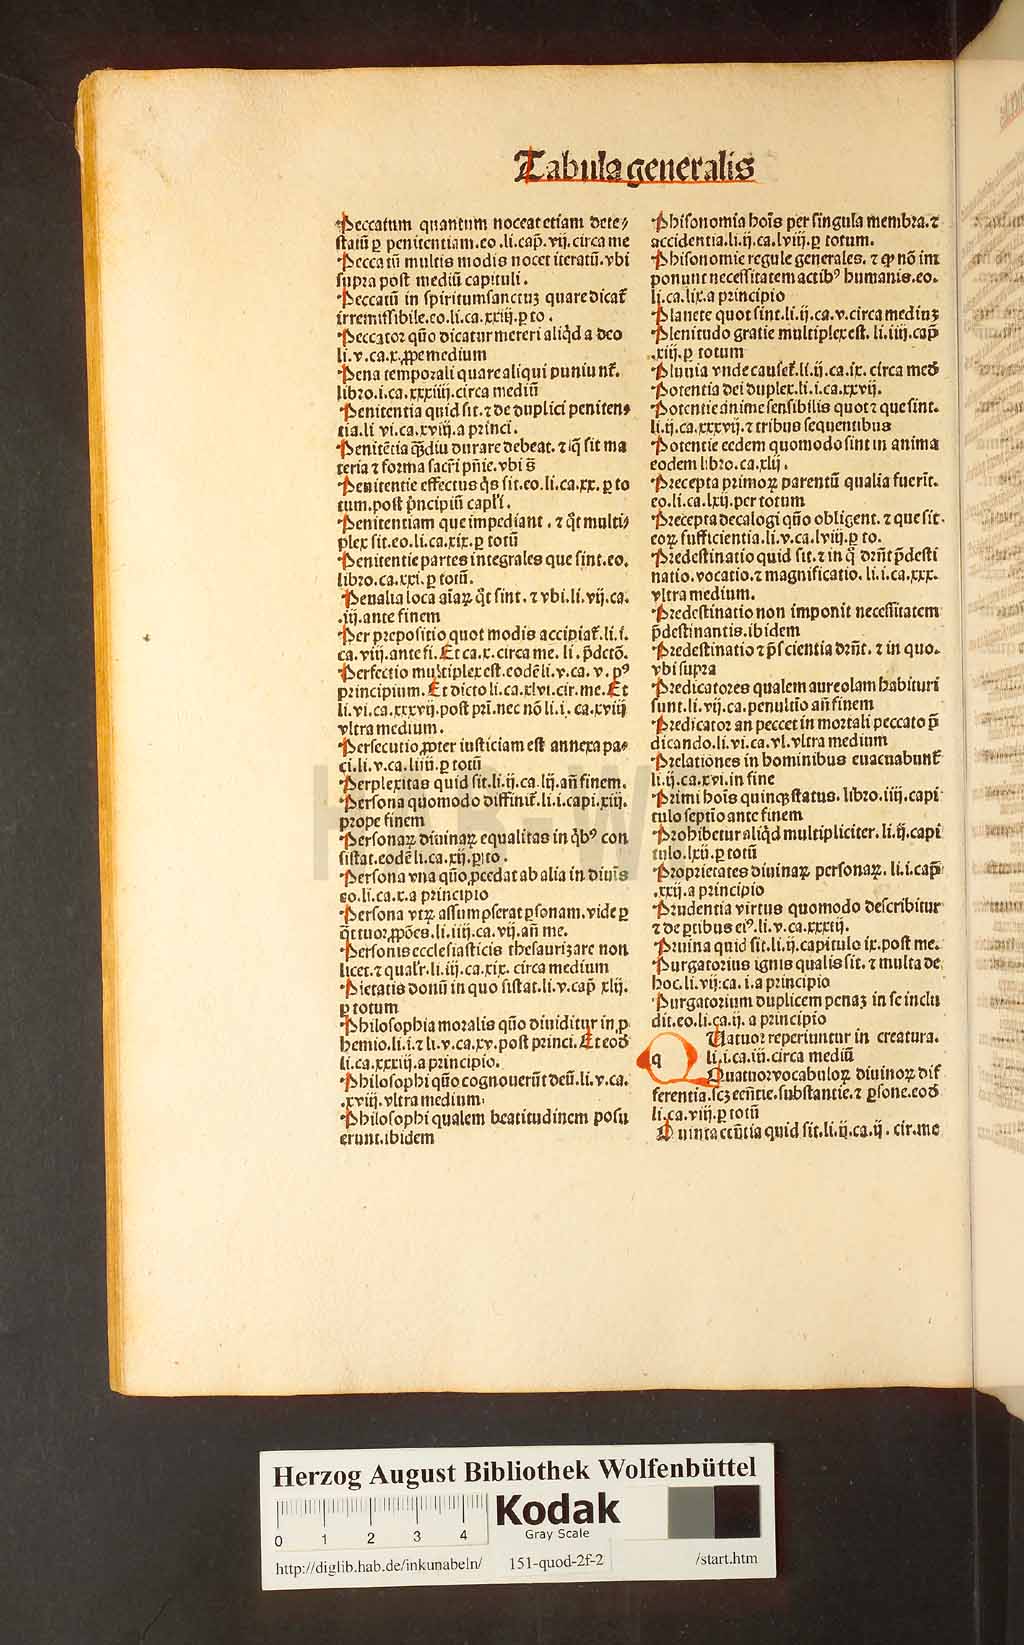 Tabula generalis
Peccatum quantum noceat etiam dete⸗
statū ꝑ penitentiam.eo.li.cap̄.vij.circa me
Peccatū multis modis nocet iteratū.vbi
supra post mediū capituli.
Peccatū in spiritumsanctuꝫ quare dicat᷑
irremissibile.eo.li.ca.xxiij.ꝑ to.
Peccator quō dicatur mereri aliqd a deo
li.v.ca.x.ꝓpe medium
Pena temporali quare aliqui puniunt᷑.
libro.i.ca.xxxiiij.circa mediū
Penitentia quid sit.⁊ de duplici peniten⸗
tia.li vi.ca.xviij.a princi.
Penitētia qͣꝫdiu durare debeat.⁊ q̄ sit ma
teria ⁊ forma sacri pn̄ie.vbi s̄
Penitentie effectus qͥs sit.eo.li.ca.xx.ꝑ to
tum.post pͥncipiū capl'i.
Penitentiam que impediant.⁊ qͣt multi⸗
plex sit.eo.li.ca.xix.ꝑ totū
Penitentie partes integrales que sint.eo.
libro.ca.xxi.ꝑ totū.
Penalia loca aīaꝝ qͣt sint.⁊ vbi.li.vij.ca.
.iij.ante finem
Per prepositio quot modis accipiat᷑.li.i.
ca.viij.ante fi.Et ca.x.circa me.li.p̄dctō.
Perfectio multiplex est.eodē li.v.ca.v.pꝰ
principium.Et dicto li.ca.xlvi.cir.me.Et
li.vi.ca.xxxvij.post pri.nec nō li.i.ca.xviij
vltra medium.
Persecutio ꝓpter iusticiam est annexa pa⸗
ci.li.v.ca.liiii.ꝑ totū
Perplexitas quid sit.li.ij.ca.lij.añ finem.
Persona quomodo diffinit᷑.li.i.capi.xij.
prope finem
Personaꝝ diuinaꝝ equalitas in qͥbꝰ con
sistat.eodē li.ca.xij.ꝑ to.
Persona vna quō ꝓcedat ab alia in diuīs
eo.li.ca.x.a principio
Persona vtꝝ assumpserat ꝑsonam.vide ꝑ
qͣttuor ꝓpōes.li.iiij.ca.vij.añ me.
Personis ecclesiasticis thesaurizare non
licet.⁊ qualr̄.li.iij.ca.xix.circa medium
Pietatis donū in quo sistat.li.v.cap̄ xlij.
ꝑ totum
Philosophia moralis quō diuiditur in ꝓ
hemio.li.i.⁊ li.v.ca.xv.post princi.Et eod̄
li.ca.xxxiij.a principio.
Philosophi quō cognouerūt deū.li.v.ca.
.xviij.vltra medium.
Philosophi qualem beatitudinem posu
erunt.ibidem
Phisonomia hoīs per singula membra.⁊
accidentia.li.ij.ca.lviij.ꝑ totum.
Phisonomie regule generales.⁊ ꝙ nō im
ponunt necessitatem actibꝰ humanis.eo.
li.ca.lix.a principio
Planete quot sint.li.ij.ca.v.circa mediuꝫ
Plenitudo gratie multiplex est.li.iiij.cap̄
.xiij.ꝑ totum
Pluuia vnde causet᷑.li.ij.ca.ix.circa med̄
Potentia dei duplex.li.i.ca.xxvij.
Potentie anime sensibilis quot ⁊ que sint.
li.ij.ca.xxxvij.⁊ tribus sequentibus
Potentie eedem quomodo sint in anima
eodem libro.ca.xlij.
Precepta primoꝝ parentū qualia fuerīt.
eo.li.ca.lxij.per totum
Precepta decalogi quō obligent.⁊ que sit.
eoꝝ sufficientia.li.v.ca.lviij.ꝑ to.
Predestinatio quid sit.⁊ in q̄ drn̄t p̄desti
natio.vocatio.⁊ magnificatio.li.i.ca.xxx.
vltra medium.
Predestinatio non imponit necessitatem
p̄destinantis.ibidem
Predestinatio ⁊ p̄scientia drn̄t.⁊ in quo.
vbi supra
Predicatores qualem aureolam habituri
sunt.li.vij.ca.penultio añ finem
Predicator an peccet in mortali peccato p̄
dicando.li.vi.ca.vl.vltra medium
Prelationes in hominibus euacuabunt᷑
li.ij.ca.xvi.in fine
Primi hoīs quinqꝫ status.libro.iij.capi
tulo septīo ante finem
Prohibetur aliqd multipliciter.li.ij.capi
tulo.lxij.ꝑ totū
Proprietates diuinaꝝ personaꝝ.li.i.cap̄
.xxij.a principio
Prudentia virtus quomodo describitur
⁊ de ꝑtibus eiꝰ.li.v.ca.xxxiij.
Pruina quid sit.li.ij.capitulo ix.post me.
Purgatorius ignis qualis sit.⁊ multa de
hoc.li.vij.ca.i.a principio
Purgatorium duplicem penaꝫ in se inclu
dit.eo.li.ca.ij.a principio
q Uatuor reperiuntur in creatura.
li.i.ca.iii.circa mediū
Quatuor vocabuloꝝ diuinoꝝ dif
ferentia.scꝫ eēntie.substantie.⁊ ꝑsone.eod̄
li.ca.viij.ꝑ totū
Quinta eēntia quid sit.li.ij.ca.ij.cir.me
HAB-W
Herzog August Bibliothek Wolfenbüttel
0 1 2 3 4
Kodak
Gray Scale
http://diglib.hab.de/inkunabeln/ 151-quod-2f-2 /start.htm